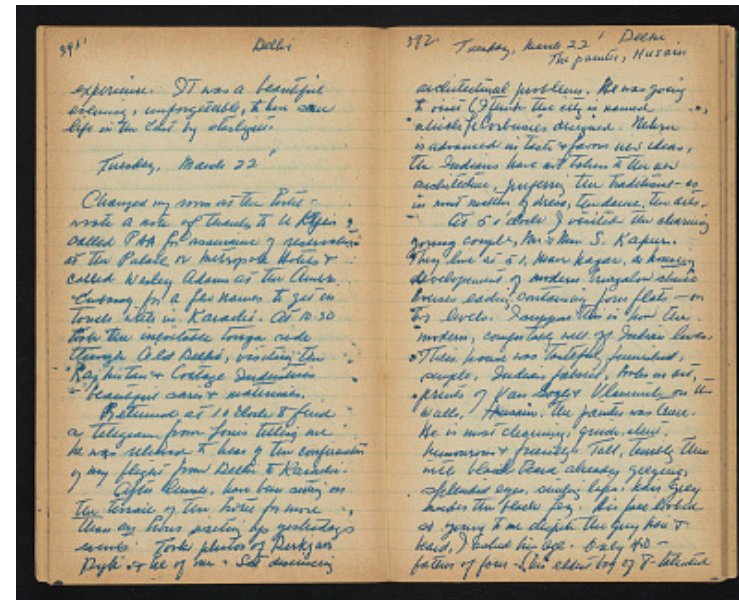 391
Delhi
experience. It was a beautiful
evening, unforgettable, to have seen
life in the East by starlight.
Tuesday, March 22
Changed my room at the hotel -
wrote a note of thanks to U
called PAA for assurance of reservation
at the Palace or Metropole Hotels &
called Wesley Adams at the Amer.
Embassy for a few names to get in
touch with in Karachi. At 10.30
took the inevitable tonga ride
through Old Delhi, visiting the
Raj & Cottage Industries
- beautiful saris & materials.
Returned at 1 o'clock to find
a telegram from Louis telling me
he was relieved to hear of the confirmation
of my flight from Delhi to Karachi.
After dinner, have been sitting on
the terrace of the hotel for more
than an hour writing by yesterday's
events. Took photos of
& he of me. Sat
392
Tuesday, March 22 Delhi
The painter, Husain
architectural problems. He was going
to visit (I the city is named
which Le Corbusier designed. Nehru
is advanced in taste & favors new ideas,
the Indians have not taken to the new
architecture, preferring the traditional - as
in most matters of dress, the dance, the arts.
At 5 o'clock I visited the charming
young couple, Mr & Mrs S. Kapur.
They live at 51, Nagar, a housing
development of modern bungalow
houses each containing four flats - on
two levels. I suppose this is how the
modern, comfortably well off Indian lives.
Their house was tastefully furnished,
simple, Indian fabrics, books on art,
prints of Van Gogh & Vlaminck on the
walls. Husain, the painter was there.
He is most charming, gentle,
humourous & friendly. Tall, terribly thin
with black beard already greying,
splendid eyes, smiling lips, hair grey
under the black fez. His face looked
so young to me despite the grey hair &
beard, I asked his age. Only 40 -
father of four - his eldest boy of 8 - talented